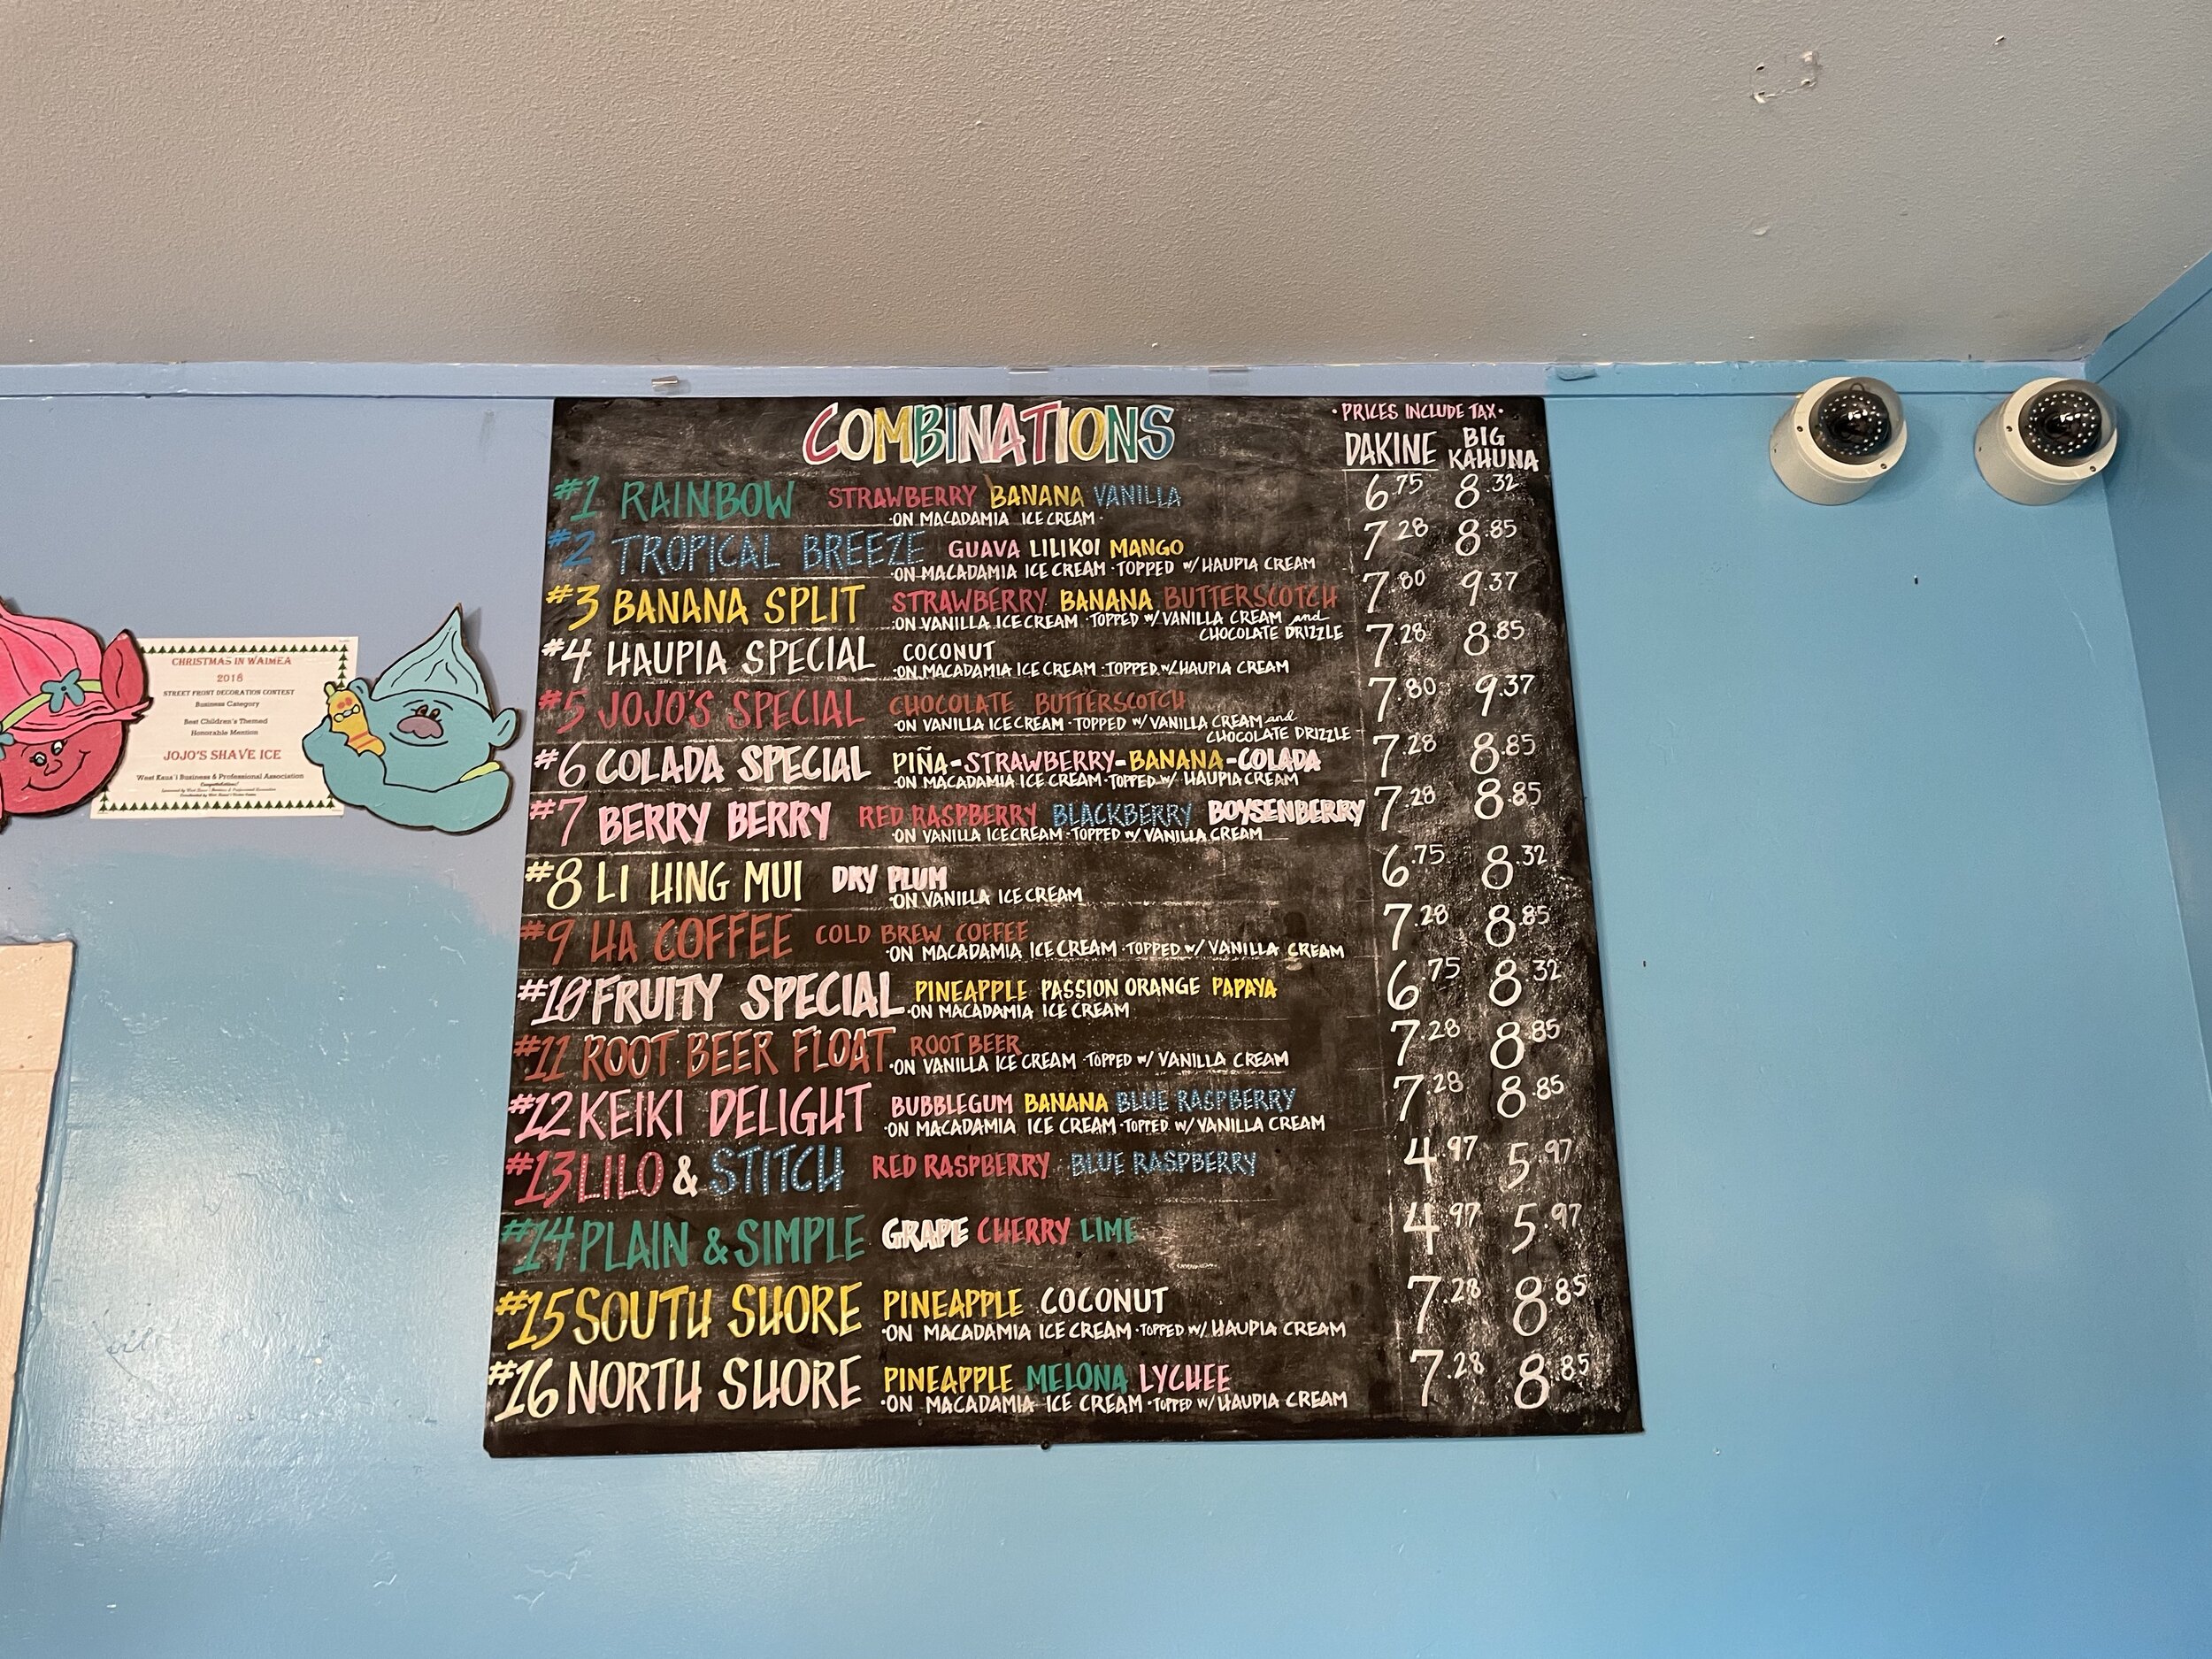 COMBINATIONS
·PRICES INCLUDE TAX·
DAKINE BIG KAHUNA
#1 RAINBOW STRAWBERRY BANANA VANILLA 6.75 8.32
·ON MACADAMIA ICE CREAM·
#2 TROPICAL BREEZE GUAVA LILIKOI MANGO 7.28 8.85
·ON MACADAMIA ICE CREAM ·TOPPED W/ HAUPIA CREAM
#3 BANANA SPLIT STRAWBERRY BANANA BUTTERSCOTCH 7.80 9.37
·ON VANILLA ICE CREAM ·TOPPED W/ VANILLA CREAM and
CHOCOLATE DRIZZLE
#4 HAUPIA SPECIAL COCONUT 7.28 8.85
·ON MACADAMIA ICE CREAM ·TOPPED W/ HAUPIA CREAM
#5 JOJO'S SPECIAL CHOCOLATE BUTTERSCOTCH 7.80 9.37
·ON VANILLA ICE CREAM ·TOPPED W/ VANILLA CREAM and
CHOCOLATE DRIZZLE
#6 COLADA SPECIAL PIÑA-STRAWBERRY-BANANA-COLADA 7.28 8.85
·ON MACADAMIA ICE CREAM ·TOPPED W/ HAUPIA CREAM
#7 BERRY BERRY RED RASPBERRY BLACKBERRY BOYSENBERRY 7.28 8.85
·ON VANILLA ICE CREAM ·TOPPED W/ VANILLA CREAM
#8 LI HING MUI DRY PLUM 6.75 8.32
·ON VANILLA ICE CREAM
#9 HA COFFEE COLD BREW COFFEE 7.28 8.85
·ON MACADAMIA ICE CREAM ·TOPPED W/ VANILLA CREAM
#10 FRUITY SPECIAL PINEAPPLE PASSION ORANGE PAPAYA 6.75 8.32
·ON MACADAMIA ICE CREAM
#11 ROOT BEER FLOAT ROOT BEER 7.28 8.85
·ON VANILLA ICE CREAM ·TOPPED W/ VANILLA CREAM
#12 KEIKI DELIGHT BUBBLEGUM BANANA BLUE RASPBERRY 7.28 8.85
·ON MACADAMIA ICE CREAM ·TOPPED W/ VANILLA CREAM
#13 LILO & STITCH RED RASPBERRY BLUE RASPBERRY 4.97 5.97
#14 PLAIN & SIMPLE GRAPE CHERRY LIME 4.97 5.97
#15 SOUTH SHORE PINEAPPLE COCONUT 7.28 8.85
·ON MACADAMIA ICE CREAM ·TOPPED W/ HAUPIA CREAM
#16 NORTH SHORE PINEAPPLE MELONA LYCHEE 7.28 8.85
·ON MACADAMIA ICE CREAM ·TOPPED W/ HAUPIA CREAM
CHRISTMAS IN WAIMEA
2018
STREET FRONT DECORATION CONTEST
Business Category
Best Children's Themed
Honorable Mention
JOJO'S SHAVE ICE
West Kaua'i Business & Professional Association
Congratulations!